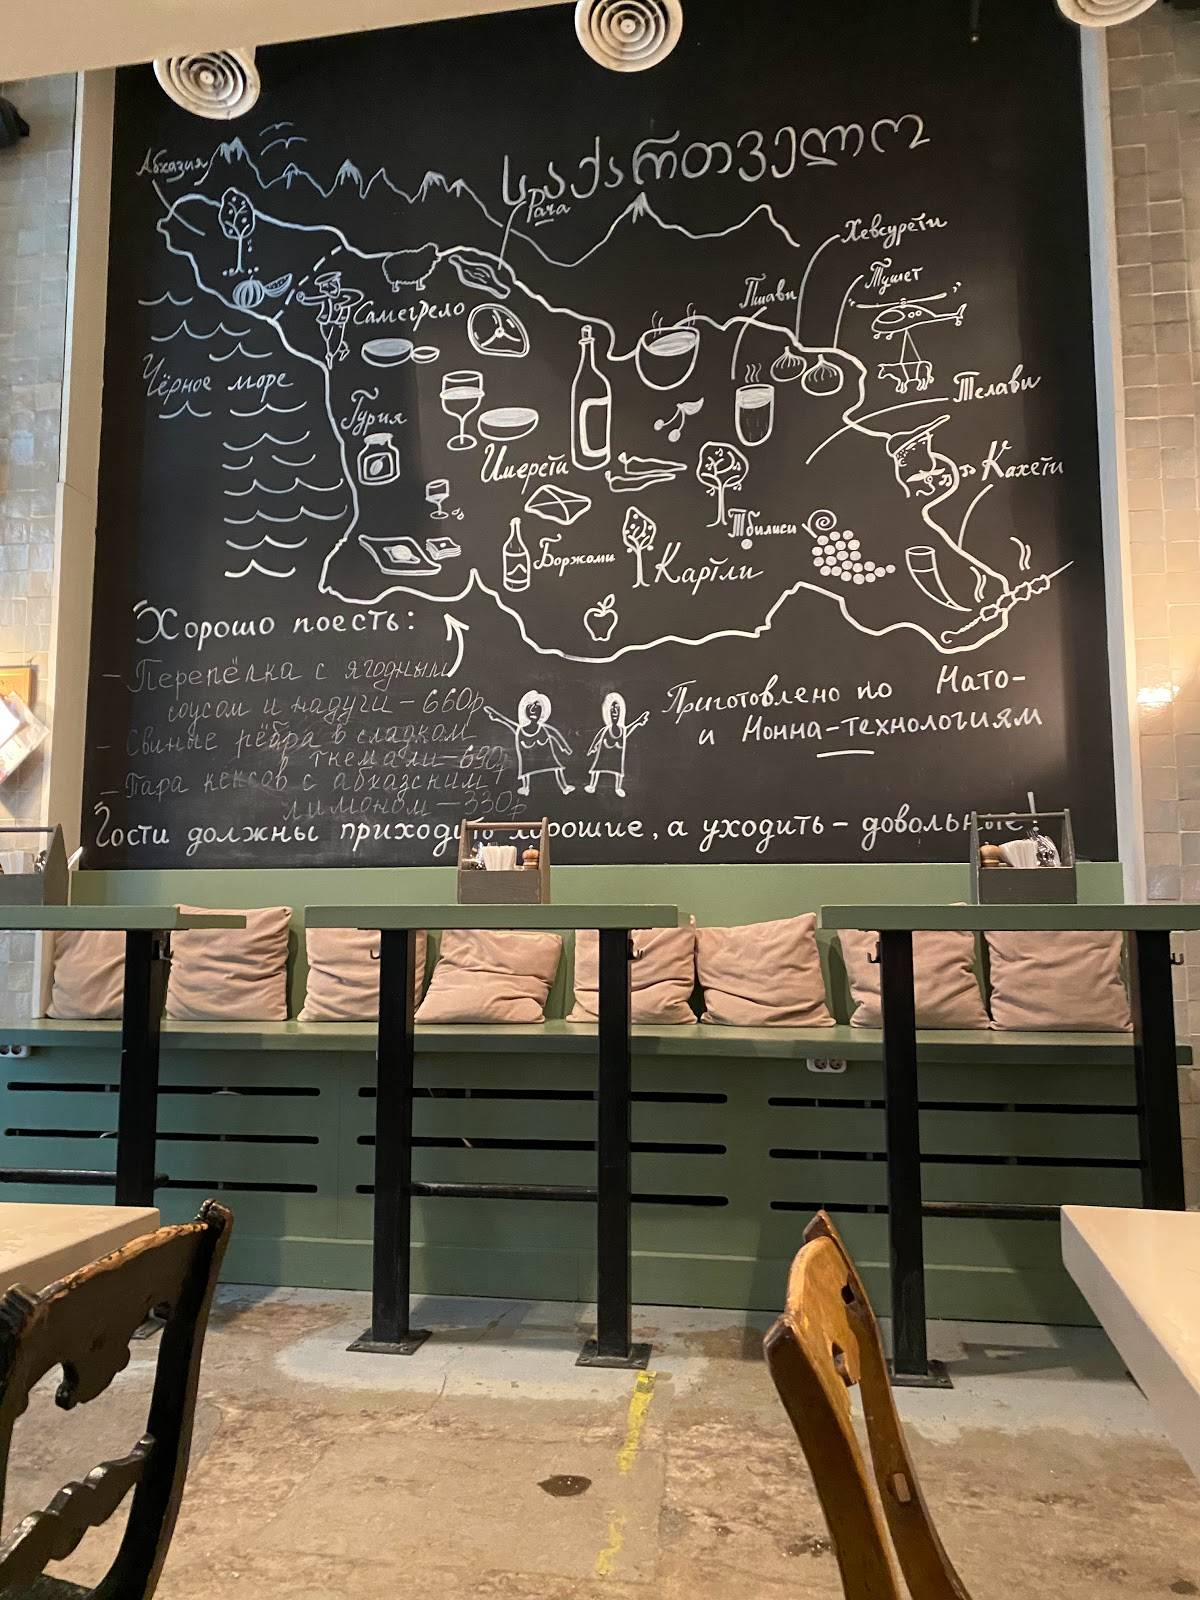 საქართველო
Абхазия
Рача
Хевсурети
Тушет
Пшави
Самегрело
Чёрное море
Телави
Гурия
Имерети
Кахети
Тбилиси
Боржоми
Картли
Хорошо поесть:
- Перепёлка с ягодным
соусом и надуги - 660р
- Свиные рёбра в сладком
ткемали - 690р
- Пара кексов с абхазским
лимоном - 330р
Приготовлено по Мато-
и Нонна-технологиям
Гости должны приходить хорошие, а уходить - довольные!